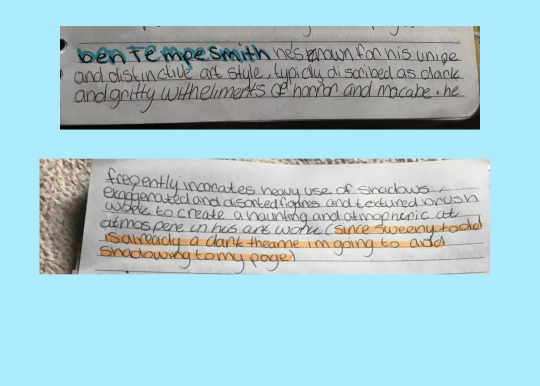 ben Tempesmith hes known for his uniqe
and distinctive art style, typicly discribed as dark
and gritty with eliments of horror and macabe. he
freqently incorates heavy use of shadows,
exaggerated and disorted figures and textured brush
work to create a haunting and atmopheric at
atmospere in his art work (since sweeny todd
is already a dark theame im going to add
shadowing to my page)